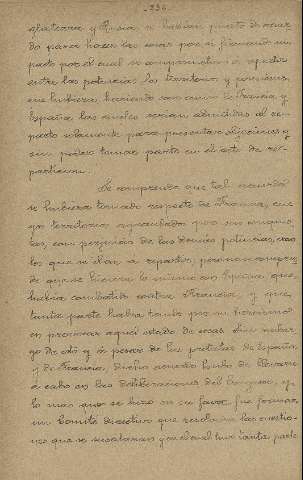 236
glaterra y Rusia se habían puesto de acuer-
do para hacer las cosas por si firmando un
pacto por el cual se comprometían a repartir
entre las potencias los territorios y posesiones,
que hubieran
España, las cuales serían admitidas al re-
parto solamente para presentar objeciones y
sin poder tomar parte en el acto de re-
partición.
Se comprende que tal acuerdo
se hubiera tomado respecto de Francia, cu-
yos territorios agrandados por sus conquis-
tas, con perjuicio de las demás potencias, eran
los que se iban a repartir, pero no
de que se hiciera lo mismo con España, que
había combatido contra Francia y que,
tanta parte había tenido por su heroísmo
en provocar aquel estado de cosas. Sin embar-
go de esto y a pesar de las protestas de España
y de Francia, dicho acuerdo hubo de llevarse
a cabo en las deliberaciones del Congreso, y
lo mas que se hizo en su favor fue formar
un Comité directivo que resolviera las cuestio-
nes que se suscitaran y en el cual tuvo tanta parte